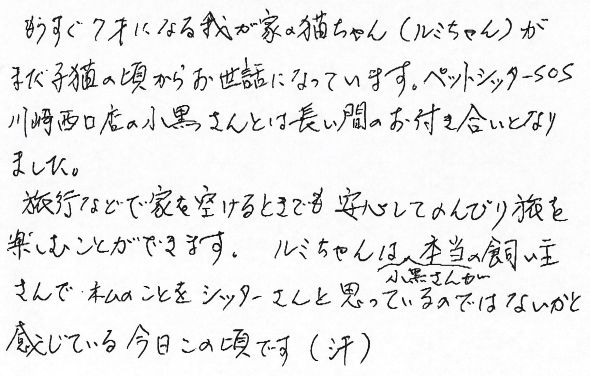 もうすぐ7才になる我が家の猫ちゃん(ルミちゃん)が
まだ子猫の頃からお世話になっています。ペットシッターSOS
川崎西口店の小黒さんとは長い間のお付き合いとなり
ました。
旅行などで家を空けるときでも安心してのんびり旅を
楽しむことができます。 ルミちゃんは、本当の飼い主
小黒さんが
さんで 私のことをシッターさんと思っているのではないかと
感じている今日この頃です(汗)